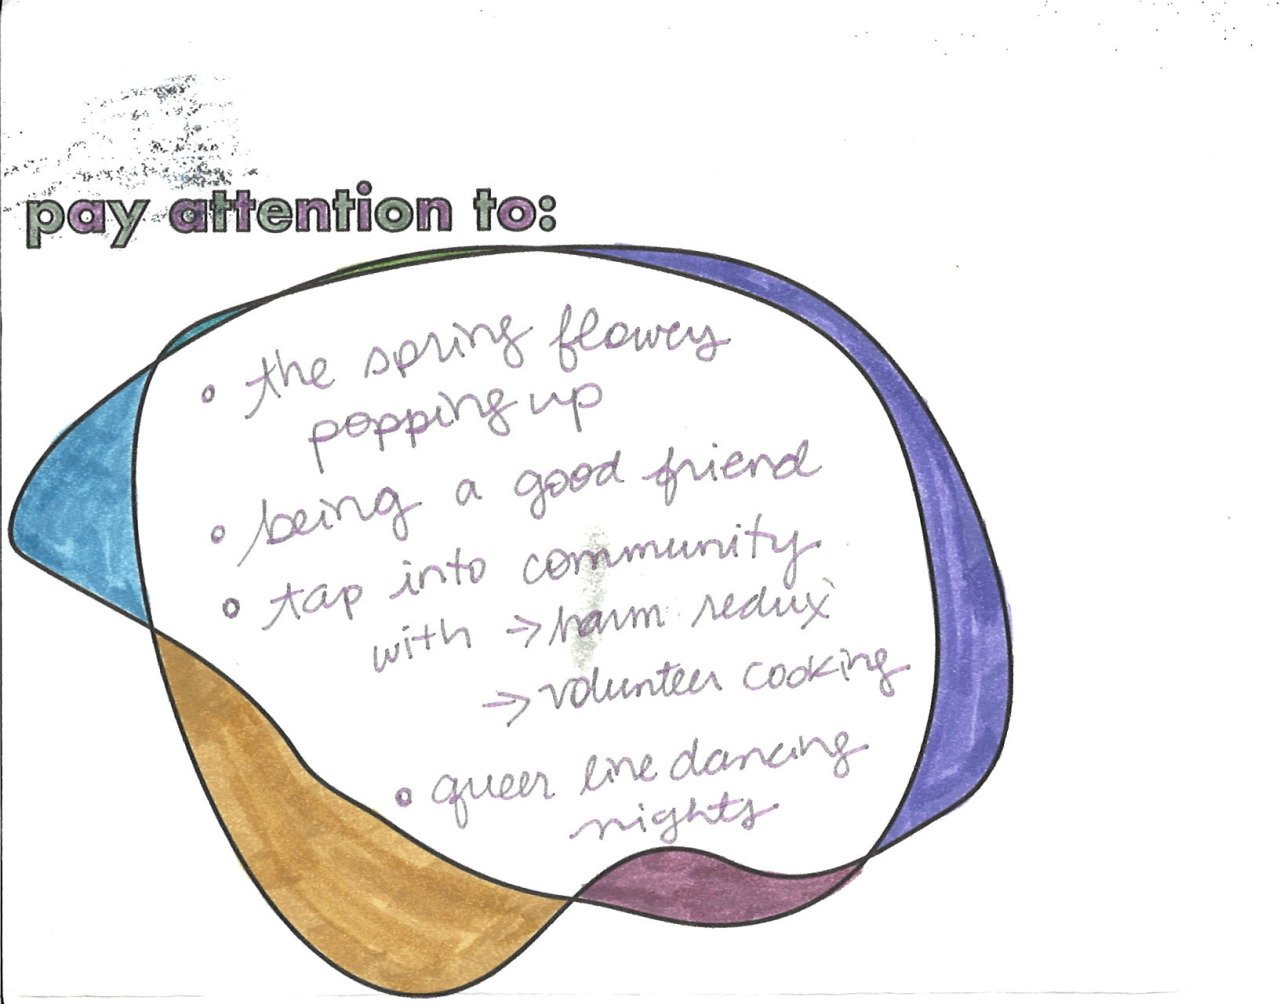 pay attention to:
• the spring flowers
popping up
• being a good friend
• tap into community
with → harm redux
→ volunteer cooking
• queer line dancing
nights